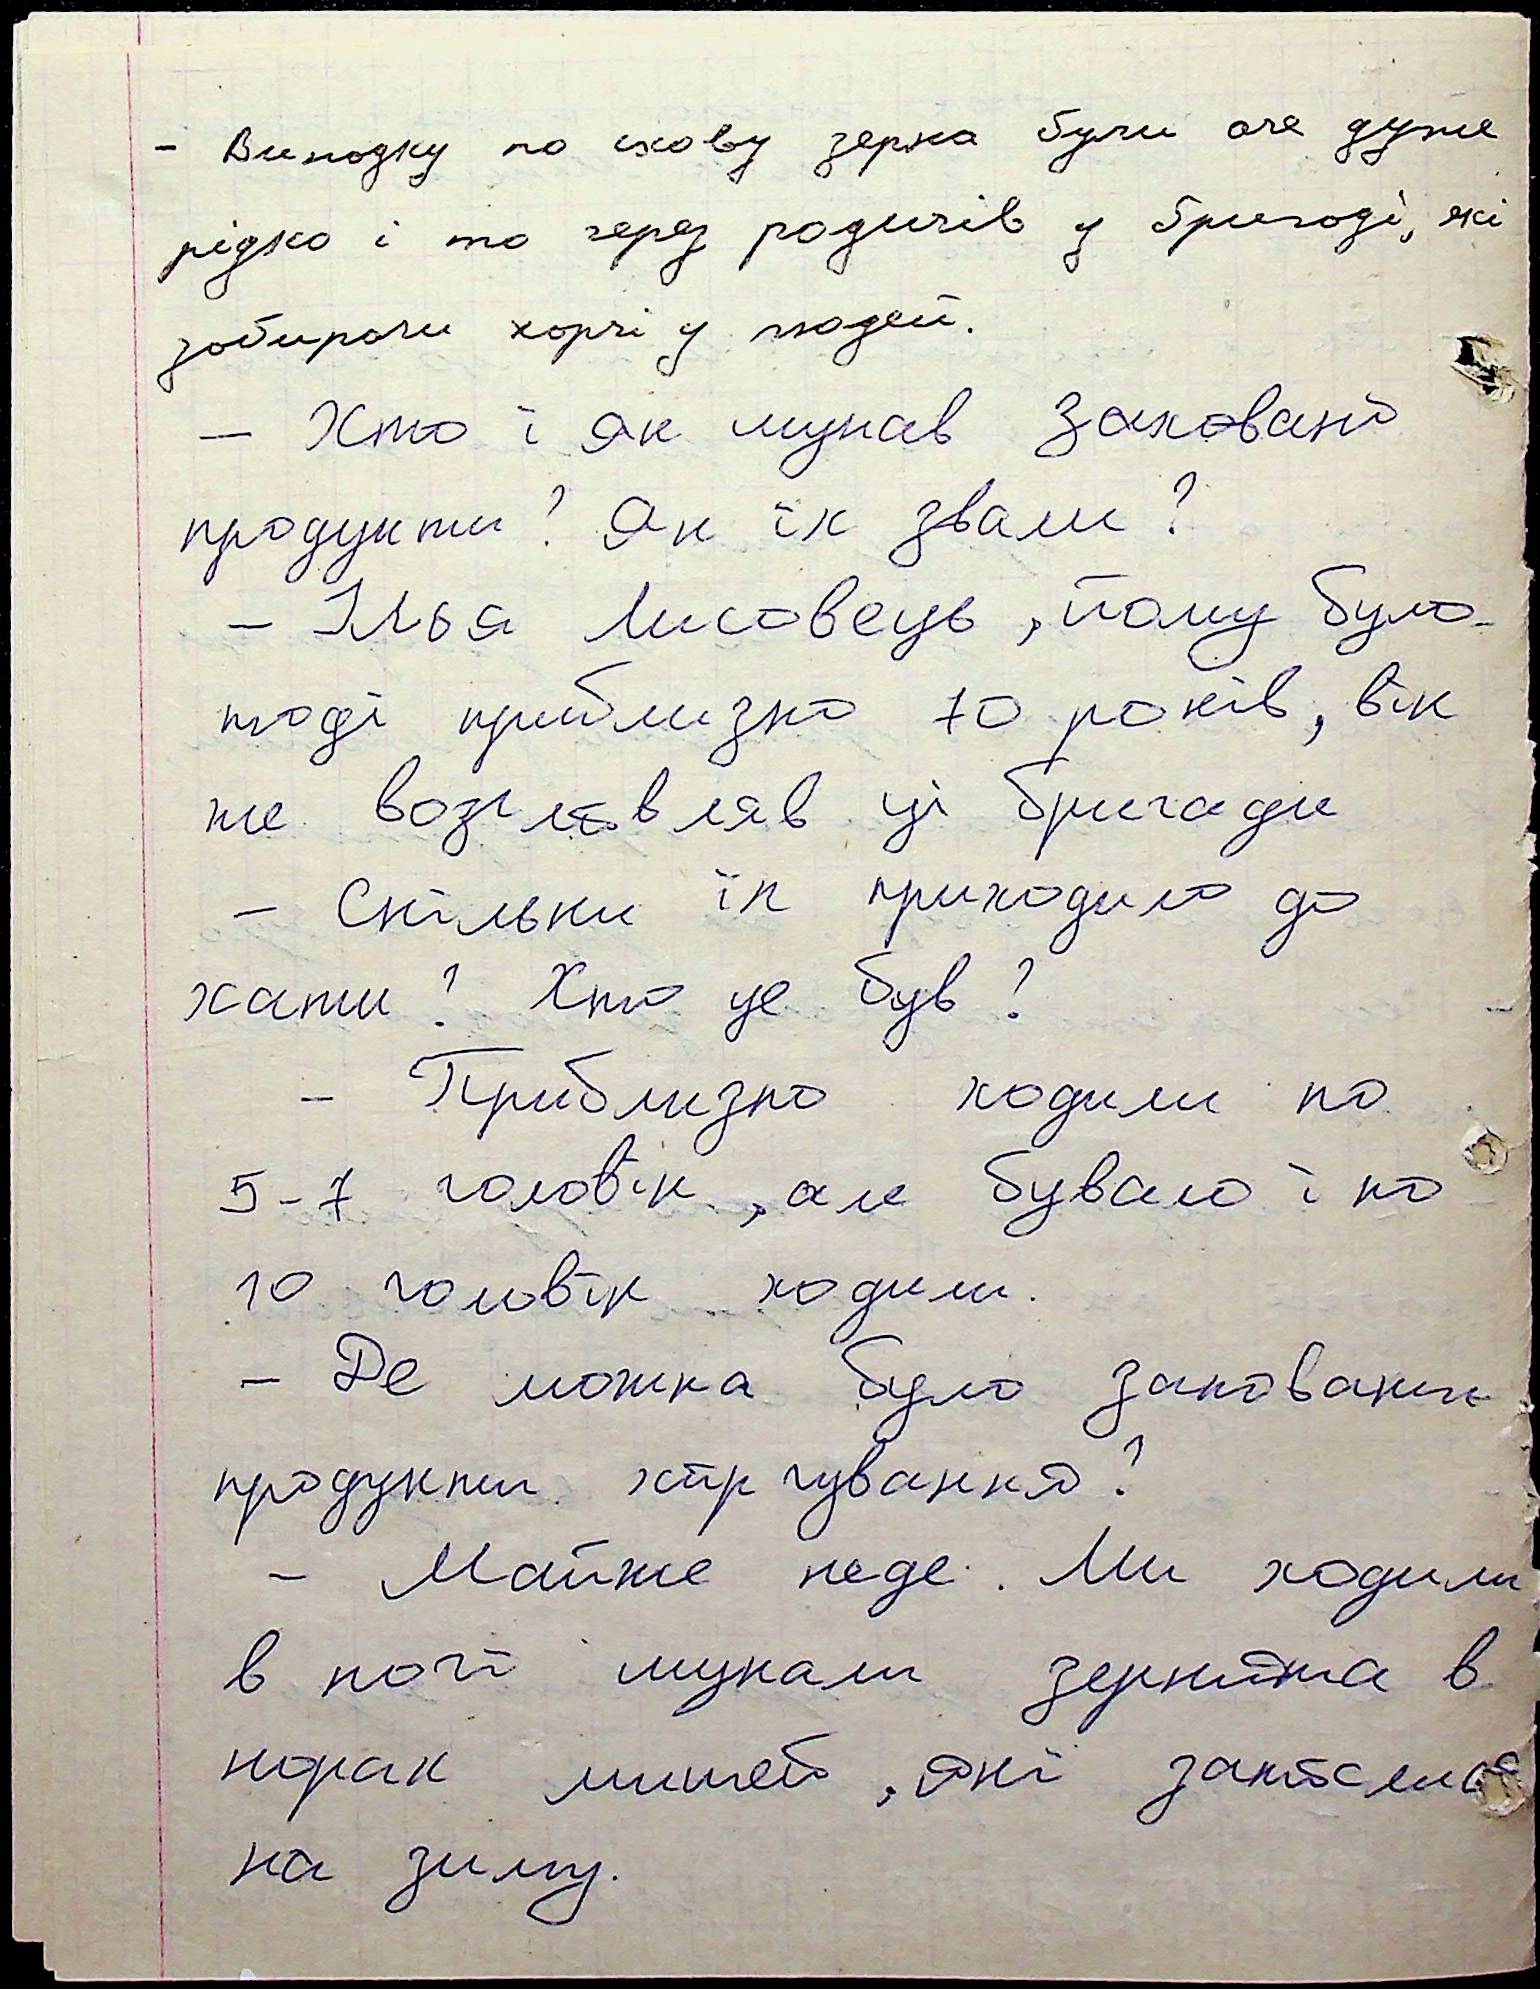 - Випадку по схову зерна були оче дуже
рідко і то через родичів у бригаді, які
забирали харчі у людей.
- Хто і як шукав заховані
продукти? Як їх звали?
- Ілья Лисовець, йому було
тоді приблизно 70 років, він
же возглавляв ці бригади
- Скільки їх приходило до
хати? Хто це був?
- Приблизно ходили по
5-7 головік, але бувало і по
10 головік ходили.
- Де можна було заховати
продукти харчування?
- Майже неде. Ми ходили
в ночі шукали зернята в
норах мишей, які
на зиму.